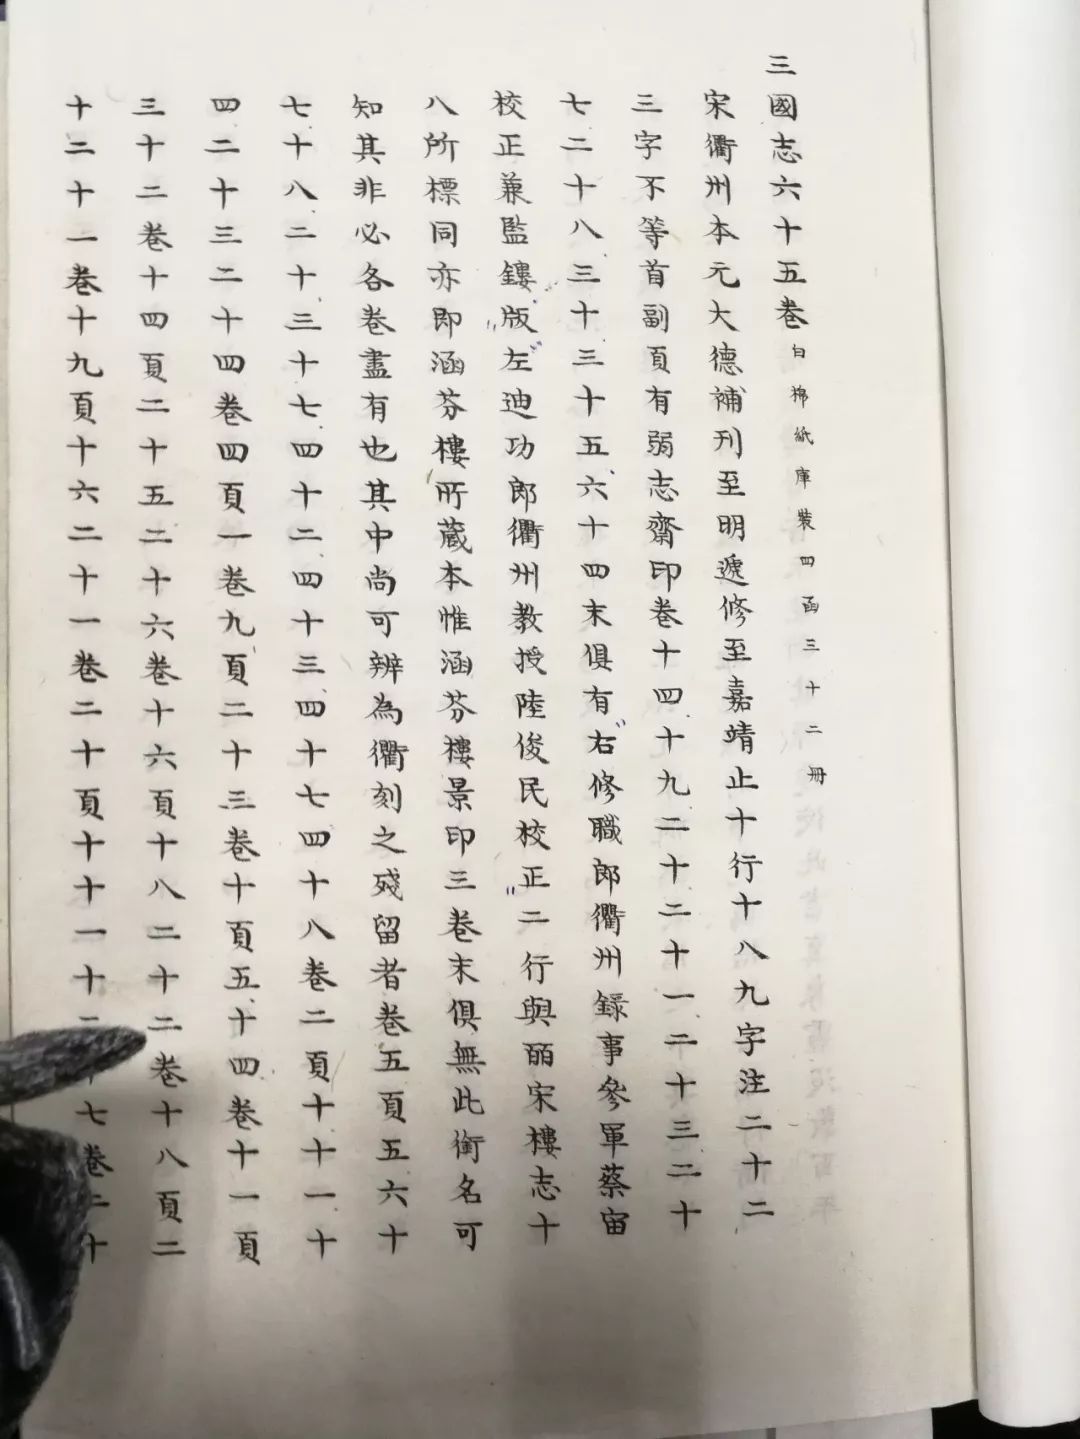 三國志六十五卷白棉紙庫裝四函三十二冊
宋衢州本元大德補刊至明遞修至嘉靖止十行十八九字注二十二
三字不等首副頁有弱志齋印卷十四十九二十二十一二十三二十
七二十八三十三十五六十四末俱有右修職郎衢州錄事參軍蔡宙
校正兼監鏤版左迪功郎衢州教授陸俊民校正二行與皕宋樓志十
八所標同亦即涵芬樓所藏本惟涵芬樓景印三卷末俱無此銜名可
知其非必各卷盡有也其中尚可辨為衢刻之殘留者卷五頁五六十
七十八二十三十七四十二四十三四十七四十八卷二頁十十一十
四二十三二十四卷四頁一卷九頁二十三卷十頁五十四卷十一頁
三十二卷十四頁二十五二十六卷十六頁十八二十二卷十八頁二
十二十一卷十九頁十六二十一卷二十頁十十一十二十七卷二十